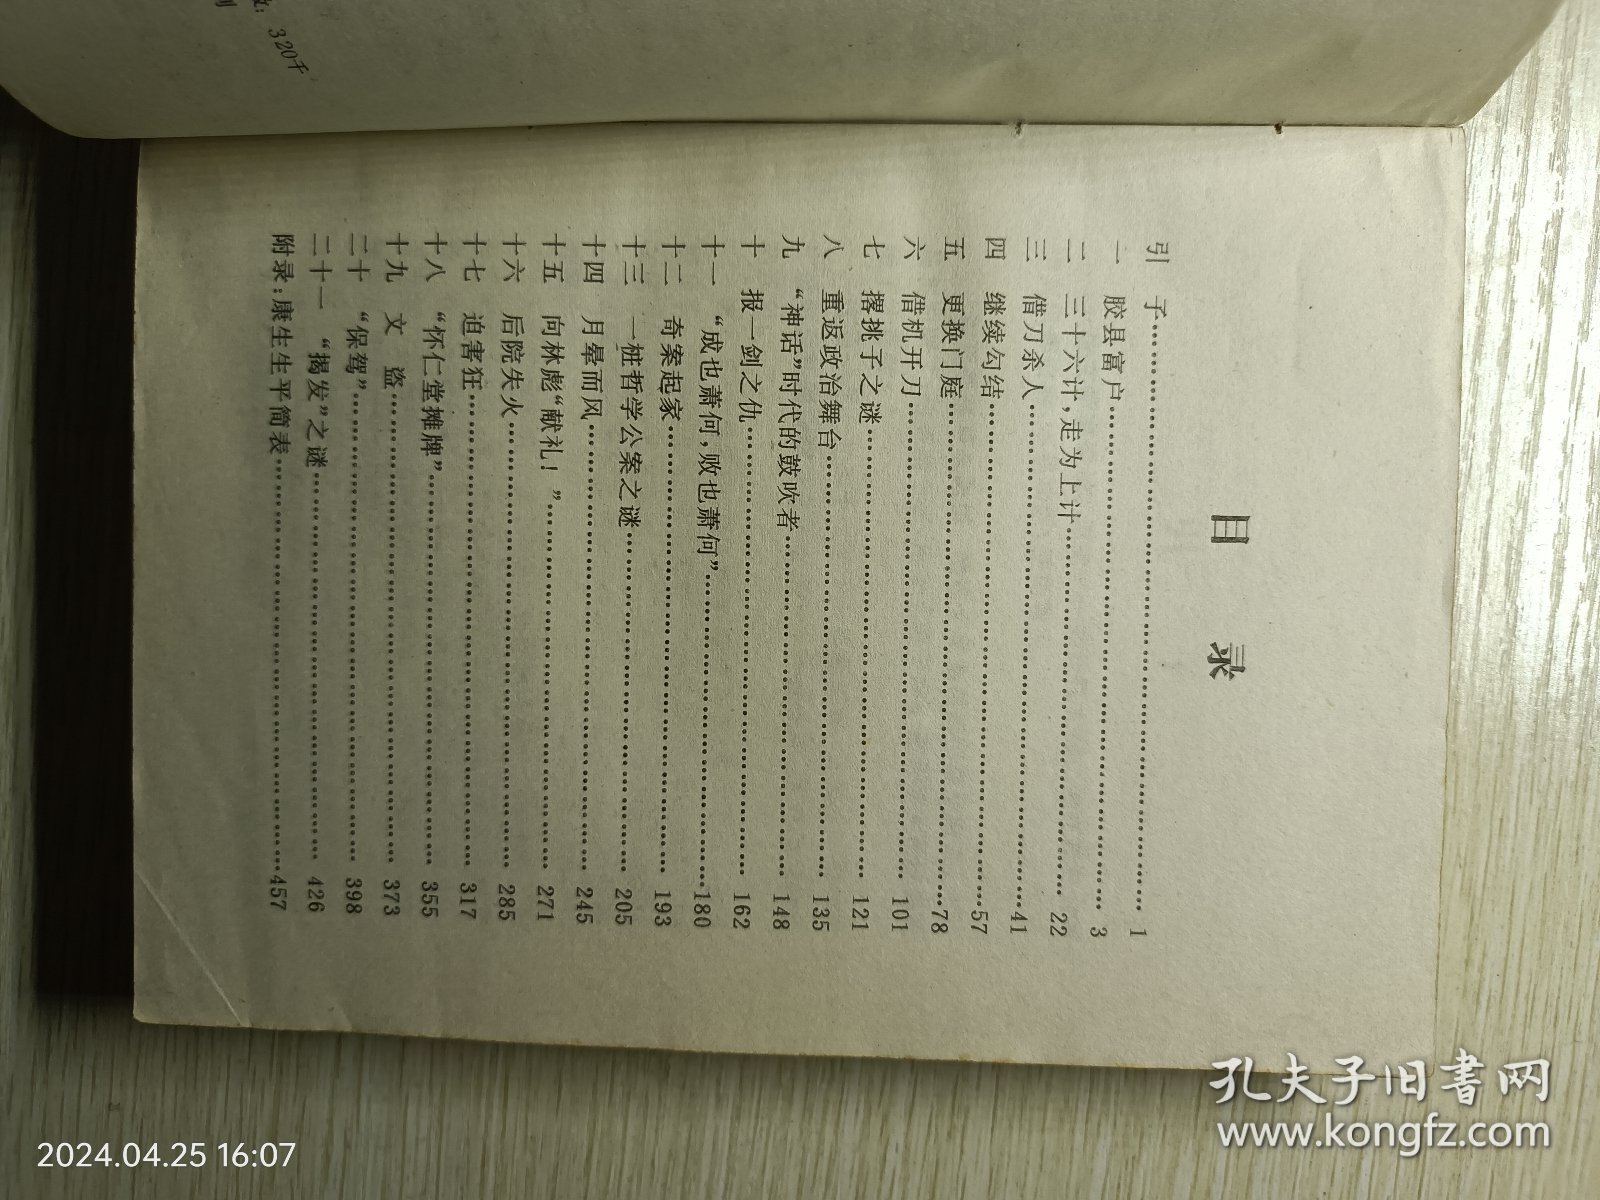 320千
目录
引 子……1
一 胶县富户……3
二 三十六计，走为上计……22
三 借刀杀人……41
四 继续勾结……57
五 更换门庭……78
六 借机开刀……101
七 撂挑子之谜……121
八 重返政治舞台……135
九 “神话”时代的鼓吹者……148
十 报一剑之仇……162
十一 “成也萧何，败也萧何”……180
十二 奇案起家……193
十三 一桩哲学公案之谜……205
十四 月晕而风……245
十五 向林彪“献礼！”……271
十六 后院失火……285
十七 迫害狂……317
十八 “怀仁堂摊牌”……355
十九 文 盗……373
二十 “保驾”……398
二十一 “揭发”之谜……426
附录：康生生平简表……457
孔夫子旧书网
www.kongfz.com
2024.04.25 16:07